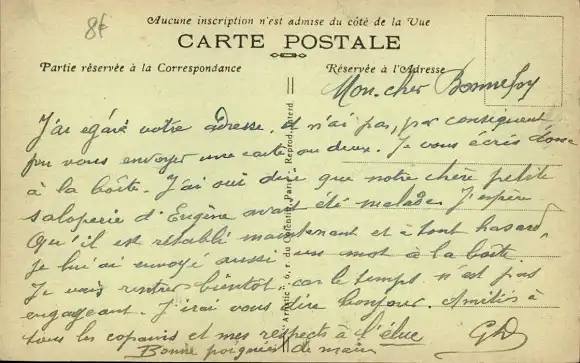 8f
Aucune inscription n'est admise du côté de la Vue
CARTE POSTALE
Partie réservée à la Correspondance
Réservée à l'Adresse
Mon cher Bonnefoy
J'ai égaré votre adresse, et n'ai pas, par conséquent
pu vous envoyer une carte ou deux. Je vous écris donc
à la boîte. J'ai ouï dire que notre chère petite
saloperie d'Eugène avait été malade. J'espère
qu'il est rétabli maintenant et à tout hasard,
je lui ai envoyé aussi un mot à la boîte.
Je vais rentrer bientôt car le temps n'est pas
engageant. J'irai vous dire bonjour. Amitiés à
tous les copains et mes respects à l'élue
Bonne poignée de main
GD
"Artistic", 6, r. du Orientin, Paris. Reprod. interd.